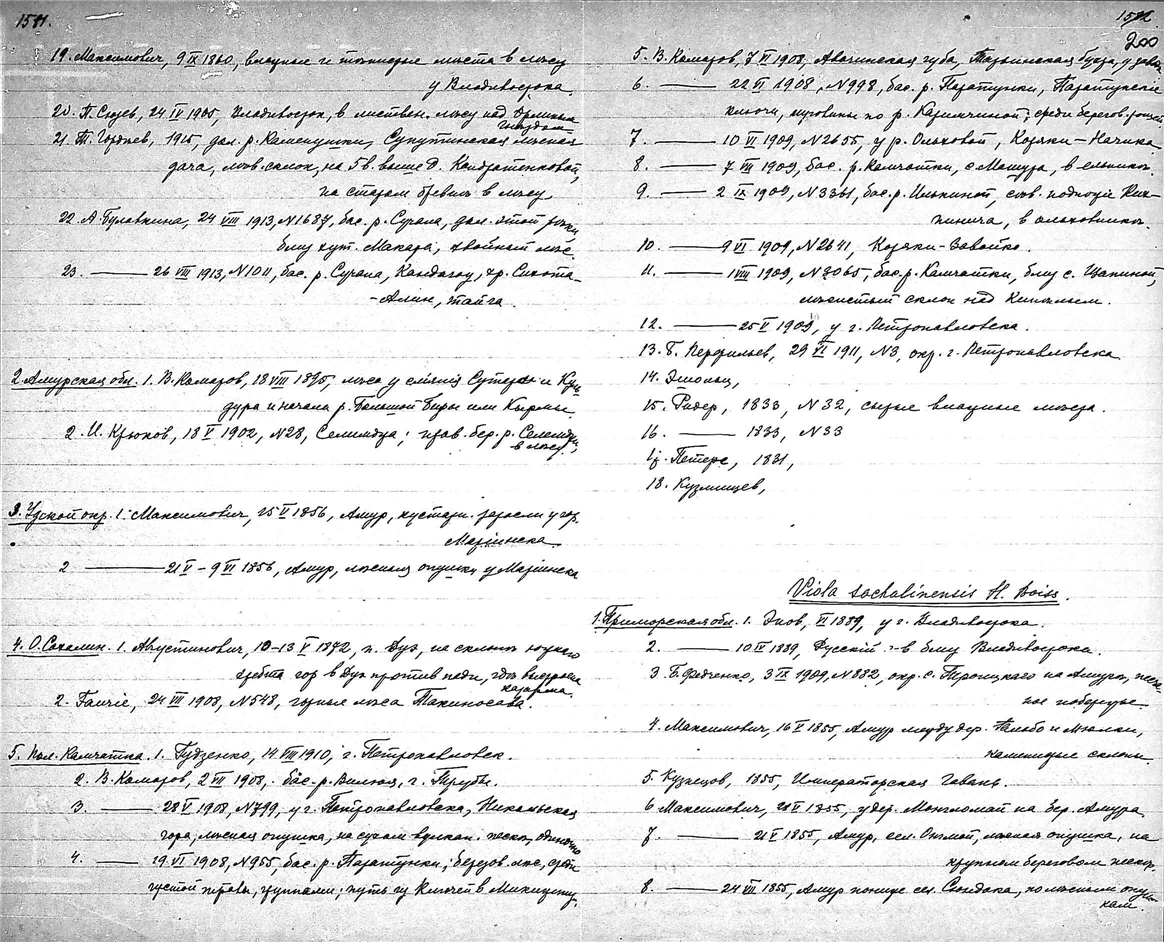 1591.
19. Максимович, 9 IX 1860, влажные и тенистые места в лесу
у Владивостока.
20. П. Сюзев, 24 IV 1905, Владивосток, в листвен. лесу над Орлиным
гнездом
21 Т. Гордеев, 1915, дол. р. Каменушки, Супутинская лесная
дача, склон, на 5 в. выше Д. Кондратенковой,
на старом бревне в лесу
22. А. Булавкина, 24 VIII 1913, N1687, бас. р. Сучана, дол. этой речки
близ хут. Макара, хвойный лес.
23. —— 26 VIII 1913, N1011, бас. р. Сучана, хр. Сихота-
-Алин, тайга.
2. Амурская обл. 1. В. Комаров, 18 VIII 1895, леса у слияния Сутара и Кун
дура и начала р. Большой Биры или Кырмы
2. И. Крюков, 18 V 1902, N28, Селимджа; прав. бер. р. Селемджи,
в лесу.
3. Удской окр. 1. Максимович, 25 V 1856, Амур, кустарн. заросли у гор.
Мариинска
2 —— 21 V – 9 VI 1856, Амур, лесная опушка у Мариинска
4. О. Сахалин. 1. Августинович, 10-13 V 1872, п. Дуэ, на склоне
хребта гор в Дуэ против пади, где выстроена
казарма.
2. Faurie, 24 VIII 1908, N548, горные леса
5. Пол. Камчатка. 1. Гудзенко, 14 VIII 1910, г. Петропавловск.
2. В. Комаров, 2 VII 1908, бас. р. Вилюя, г. Трубы.
3. —— 28 V 1908, N799, у г. Петропавловска, Никольская
гора, лесная опушка, на сухом вулкан. песке, одиночно
4. —— 19 VI 1908, N955, бас. р. Паратунки, березов. лес, среди
густой травы, группами; путь из Ключей в Микижину.
1592
200
5. В. Комаров, 7 VI 1908, Авачинская губа, Тарьинская бухта, у
6 —— 22 VI 1908, N998, бас. р. Паратунки, Паратунские
ключи, луговины по р. Карымчиной; среди берегов. рощей
7 —— 10 VI 1909, N2655, у р. Ольховой, Коряки-Начика
8 —— 7 VIII 1909, бас. р. Камчатки, с. Машура, в ельнике
9 —— 2 IX 1909, N3361, подножие Ких-
пинича, в ольховнике.
10. —— 9 VI 1909, N2641, Коряки-Завойко.
11. —— 1 VIII 1909, N3065, бас. р. Камчатки, близ с. Щапиной,
лесистый склон над
12. —— 25 V 1909, у г. Петропавловска.
13. Б. Перфильев, 29 VI 1911, N3, окр. г. Петропавловска
14. Эшольц,
15. Ридер, 1833, N32, сырые влажные места.
16. —— 1833, N33
17. Петерс, 1831,
18. Кузмищев,
Viola sachalinensis H. Boiss.
1. Приморская обл. 1. Эпов, VI 1889, у г. Владивостока.
2. —— 10 IV 1889, Русский о-в близ Владивостока.
3 Б. Федченко, 3 IX 1909, N882, окр. с. Троицкого на Амуре, песча
ное побережье
4. Максимович, 16 V 1855, Амур между дер.
каменистые склоны.
5. Кузнецов, 1855, Императорская Гавань.
6 Максимович, 28 V 1855, у дер. на бер. Амура
7 —— 21 V 1855, Амур, сел. лесная опушка, на
крупном береговом песке.
8. —— 24 VIII 1855, Амур пониже сел. по лесным опуш-
кам.